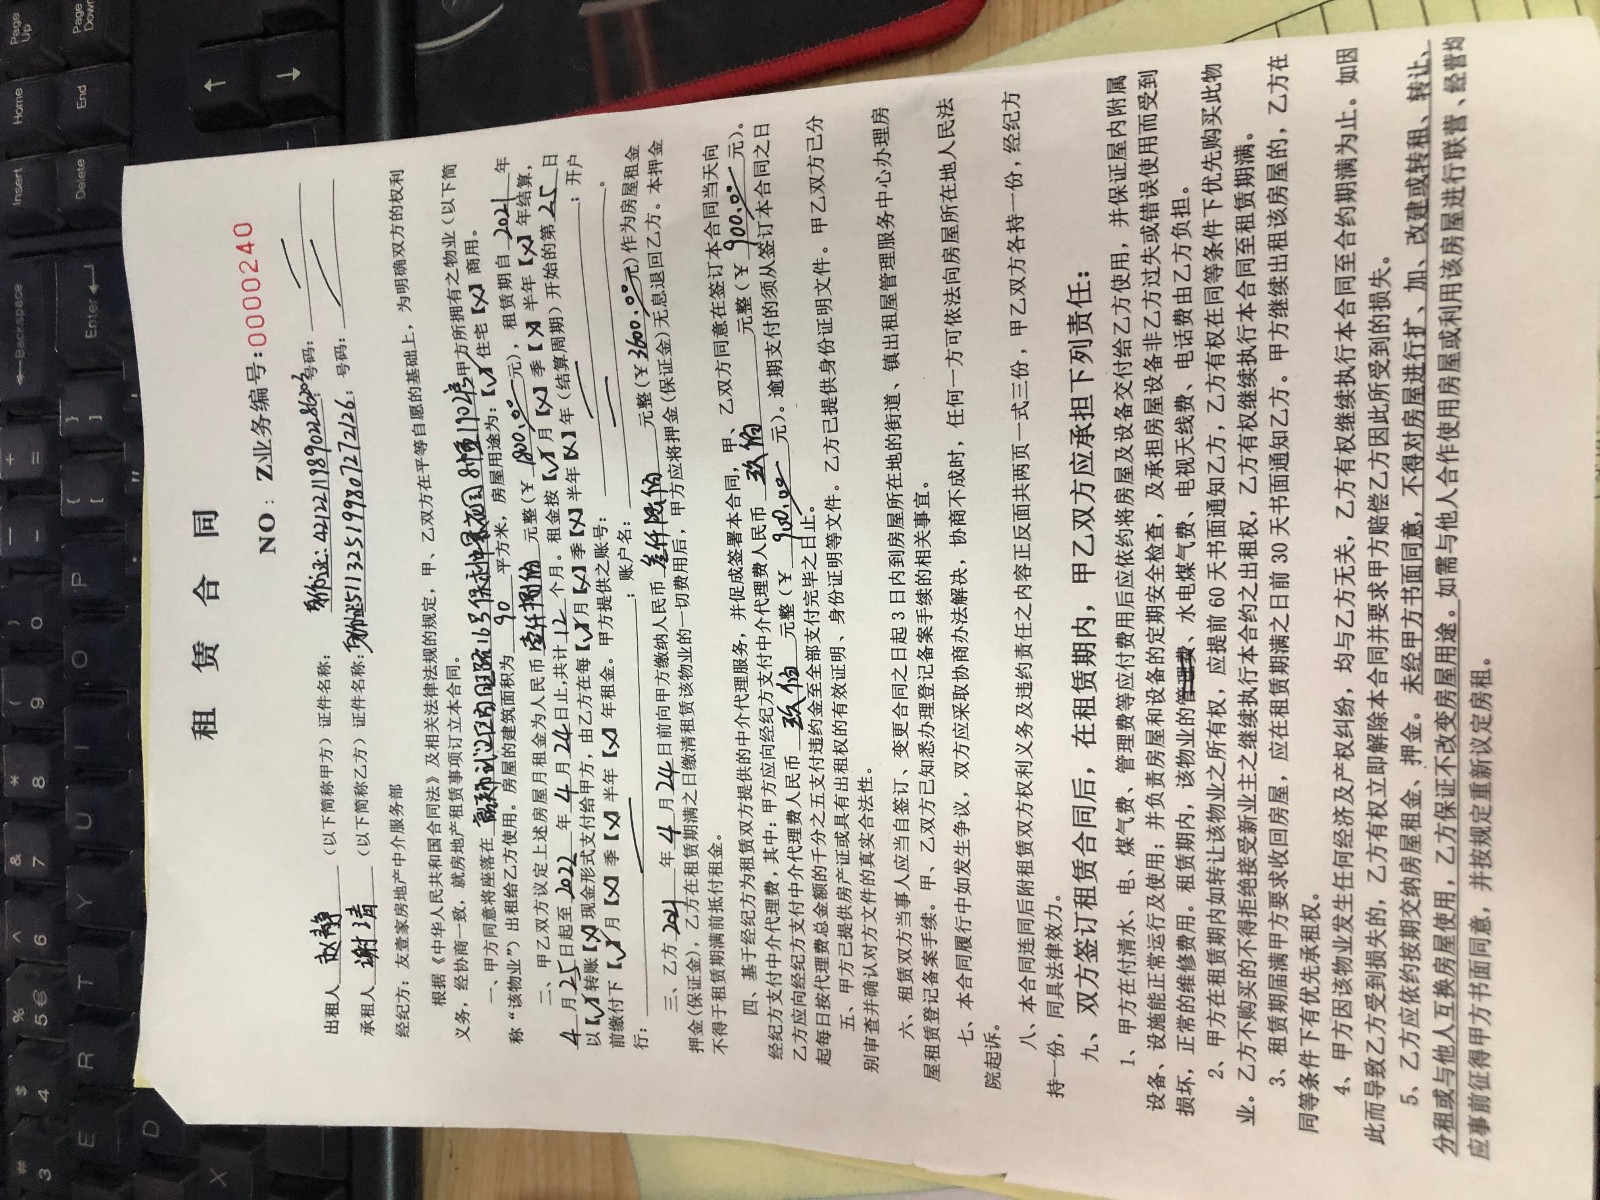 租 赁 合 同
NO: Z业务编号:0000240
出租人 赵静 (以下简称甲方) 证件名称: 身份证: 号码:
承租人 谢 (以下简称乙方) 证件名称: 身份证511325199807272126: 号码:
经纪方: 友壹家房地产中介服务部
根据《中华人民共和国合同法》及相关法律法规的规定, 甲、乙双方在平等自愿的基础上, 为明确双方的权利
义务, 经协商一致, 就房地产租赁事项订立本合同。
一、甲方同意将座落在 甲方所拥有之物业 (以下简
称“该物业”) 出租给乙方使用。房屋的建筑面积为 90 平方米, 房屋用途为:【√】住宅【X】商用。
二、甲乙双方议定上述房屋月租金为人民币 壹仟捌佰 元整 (¥ 1800.00 元), 租赁期自 2021 年
4 月 25 日起至 2022 年 4 月 24 日止,共计 12 个月。租金按【√】月【X】季【X】半年【X】年结算,
以【√】转账【X】现金形式支付给甲方, 由乙方在每【√】月【X】季【X】半年【X】年 (结算周期) 开始的第 25 日
前缴付下【√】月【X】季【X】半年【X】年租金。甲方提供之账号: ; 开户
行: ; 账户名: 。
三、乙方 2021 年 4 月 24 日前向甲方缴纳人民币 叁仟陆佰 元整 (¥ 3600.00 元) 作为房屋租金
押金(保证金), 乙方在租赁期满之日缴清租赁该物业的一切费用后, 甲方应将押金(保证金)无息退回乙方。本押金
不得于租赁期满前抵付租金。
四、基于经纪方为租赁双方提供的中介代理服务, 并促成签署本合同, 甲、乙双方同意在签订本合同当天向
经纪方支付中介代理费, 其中: 甲方应向经纪方支付中介代理费人民币 玖佰 元整 (¥ 900.00 元)。
乙方应向经纪方支付中介代理费人民币 玖佰 元整 (¥ 900.00 元)。逾期支付的须从签订本合同之日
起每日按代理费总金额的千分之五支付违约金至全部支付完毕之日止。
五、甲方已提供房产证或具有出租权的有效证明、身份证明等文件。乙方已提供身份证明文件。甲乙双方已分
别审查并确认对方文件的真实合法性。
六、租赁双方当事人应当自签订、变更合同之日起 3 日内到房屋所在地的街道、镇出租屋管理服务中心办理房
屋租赁登记备案手续。甲、乙双方已知悉办理登记备案手续的相关事宜。
七、本合同履行中如发生争议, 双方应采取协商办法解决, 协商不成时, 任何一方可依法向房屋所在地人民法
院起诉。
八、本合同连同后附租赁双方权利义务及违约责任之内容正反面共两页一式三份, 甲乙双方各持一份, 经纪方
持一份, 同具法律效力。
九、双方签订租赁合同后, 在租赁期内, 甲乙双方应承担下列责任:
1、甲方在付清水、电、煤气费、管理费等应付费用后应依约将房屋及设备交付给乙方使用, 并保证屋内附属
设备、设施能正常运行及使用; 并负责房屋和设备的定期安全检查, 及承担房屋设备非乙方过失或错误使用而受到
损坏, 正常的维修费用。租赁期内, 该物业的管理费、水电煤气费、电视天线费、电话费由乙方负担。
2、甲方在租赁期内如转让该物业之所有权, 应提前 60 天书面通知乙方, 乙方有权在同等条件下优先购买此物
业。乙方不购买的不得拒绝接受新业主之继续执行本合约之出租权, 乙方有权继续执行本合同至租赁期满。
3、租赁期届满甲方要求收回房屋, 应在租赁期满之日前 30 天书面通知乙方。甲方继续出租该房屋的, 乙方在
同等条件下有优先承租权。
4、甲方因该物业发生任何经济及产权纠纷, 均与乙方无关, 乙方有权继续执行本合同至合约期满为止。如因
此而导致乙方受到损失的, 乙方有权立即解除本合同并要求甲方赔偿乙方因此所受到的损失。
5、乙方应依约按期交纳房屋租金、押金。未经甲方书面同意, 不得对房屋进行扩、加、改建或转租、转让、
分租或与他人互换房屋使用, 乙方保证不改变房屋用途。如需与他人合作使用房屋或利用该房屋进行联营、经营均
应事前征得甲方书面同意, 并按规定重新议定房租。